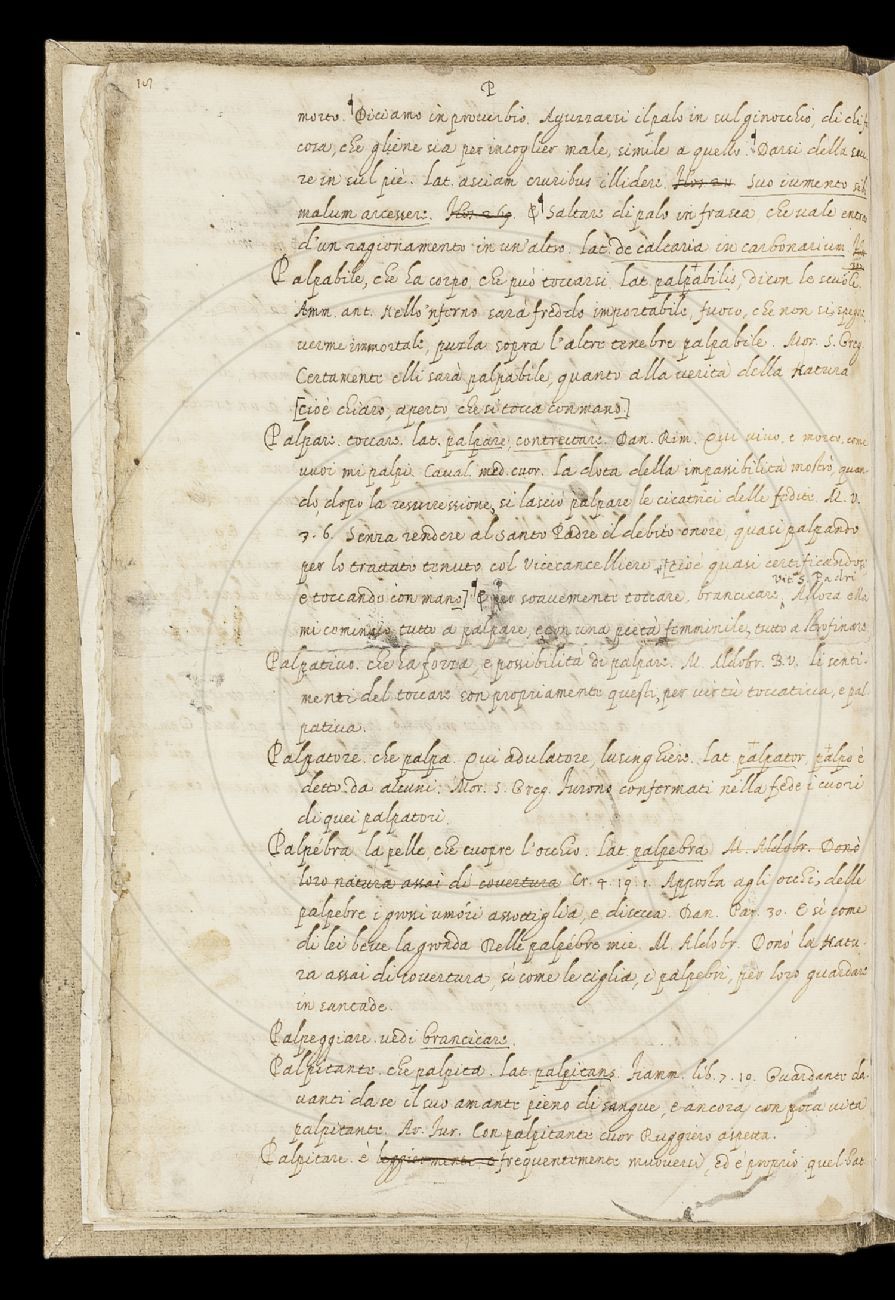 P
morto. ¶ Diciamo in proverbio. Aguzzarsi il palo in sul ginocchio, di chi
cosa, che gliene sia per incoglier male, simile a quello. ¶ Darsi della scu
re in sul piè. Lat. asciam cruribus illidere. Suo iumento sibi
malum arcessere. ¶ Saltare di palo in frasca che vale entrar
d'un ragionamento in un'altro. lat. de calcaria in carbonariam
Palpabile, che ha corpo, che può toccarsi. Lat. palpabilis, dicon le scuole.
Amm. ant. Nello 'nferno sarà freddo importabile, fuoco, che non si spegne
verme immortale, puzza sopra l'altre tenebre palpabile. Mor. S. Greg.
Certamente elli sarà palpabile, quanto alla verità della Natura
[cioè chiaro, aperto che si tocca con mano]
Palpare. toccare. lat. palpare, contrectare. Dan. Rim. Qui vivo, e morto, come
vuoi mi palpi. Caval. med. cuor. La dota della impassibilità mostrò, quan-
do, dopo la resurressione, si lasciò palpare le cicatrici delle fedite. M. V.
3. 6. Senza rendere al Santo Padre il debito onore, quasi palpando
per lo trattato tenuto col Vicecancelliere, [cioè quasi certificandosi
e toccando con mano] ¶ per soavemente toccare, brancicare. Vit. S. Padri Allora ella
mi cominciò tutto a palpare, e con una pietà femminile, tutto a stropinare
Palpativo. che ha forza, e possibilità di palpare. M. Aldobr. B. V. Li senti-
menti del toccare son propriamente questi, per virtù toccativa, e pal-
pativa.
Palpatore. che palpa. Qui adulatore, lusinghiero. Lat. palpator, palpo è
detto da alcuni. Mor. S. Greg. Furono confermati nella fede i cuori
di quei palpatori.
Palpébra la pelle, che cuopre l'occhio. Lat. palpebra M. Aldobr. Donò
loro natura assai di covertura Cr. 4. 19. 1. Apposta agli occhi, delle
palpebre i grossi umóri assottiglia, e dissecca. Dan. Par. 30. E sì come
di lei bevve la gronda Delle palpébre mie. M. Aldobr. Donò la Natu-
ra assai di covertura, sì come le ciglia, e palpebri, per loro guardare
in santade.
Palpeggiare. vedi brancicare.
Palpitante. che palpita. Lat. palpitans. Fiamm. lib. 7. 10. Guardante da-
vanti da se il suo amante pieno di sangue, e ancora con poca vita
palpitante. Ar. Fur. Con palpitante cuor Ruggiero aspetta.
Palpitare. è leggiermente e frequentemente muoversi, ed è proprio quel bat-